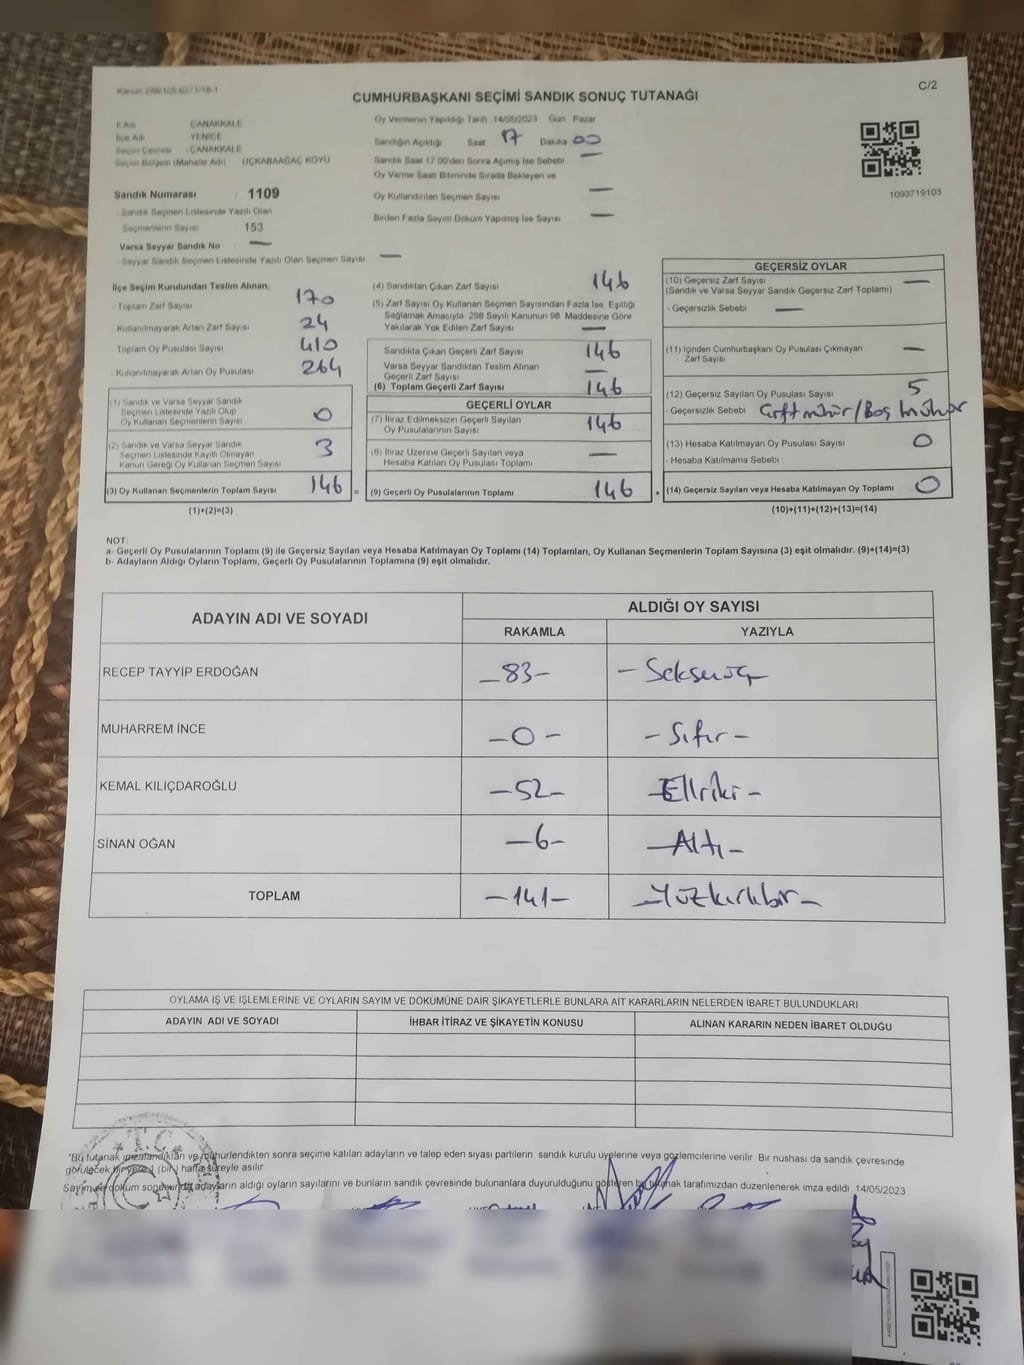 C/2
CUMHURBAŞKANI SEÇİMİ SANDIK SONUÇ TUTANAĞI
İl Adı : ÇANAKKALE
İlçe Adı : YENİCE
Seçim Çevresi : ÇANAKKALE
Seçim Bölgesi (Mahalle Adı) : UÇKABAAĞAÇ KÖYÜ
Sandık Numarası : 1109
Sandık Seçmen Listesinde Yazılı Olan
Seçmenlerin Sayısı : 153
Varsa Seyyar Sandık No : —
- Seyyar Sandık Seçmen Listesinde Yazılı Olan Seçmen Sayısı : —
Oy Vermenin Yapıldığı Tarih 14/05/2023 Gün Pazar
Sandığın Açıldığı Saat 17 Dakika 00
Sandık Saat 17.00'den Sonra Açımış İse Sebebi —
Oy Verme Saati Bitiminde Sırada Bekleyen ve
Oy Kullandırılan Seçmen Sayısı —
Birden Fazla Sayım Döküm Yapılmış İse Sayısı —
1093719103
İlçe Seçim Kurulundan Teslim Alınan;
- Toplam Zarf Sayısı 170
- Kullanılmayarak Artan Zarf Sayısı 24
- Toplam Oy Pusulası Sayısı 410
- Kullanılmayarak Artan Oy Pusulası 264
(1) Sandık ve Varsa Seyyar Sandık
Seçmen Listesinde Yazılı Olup
Oy Kullanan Seçmenlerin Sayısı 0
(2) Sandık ve Varsa Seyyar Sandık
Seçmen Listesinde Kayıtlı Olmayan
Kanun Gereği Oy Kullanan Seçmen Sayısı 3
(3) Oy Kullanan Seçmenlerin Toplam Sayısı 146 =
(1)+(2)=(3)
(4) Sandıktan Çıkan Zarf Sayısı 146
(5) Zarf Sayısı Oy Kullanan Seçmen Sayısından Fazla İse, Eşitliği
Sağlamak Amacıyla 298 Sayılı Kanunun 98. Maddesine Göre
Yakılarak Yok Edilen Zarf Sayısı —
Sandıkta Çıkan Geçerli Zarf Sayısı 146
Varsa Seyyar Sandıktan Teslim Alınan
Geçerli Zarf Sayısı —
(6) Toplam Geçerli Zarf Sayısı 146
GEÇERLİ OYLAR
(7) İtiraz Edilmeksizin Geçerli Sayılan
Oy Pusulalarının Sayısı 146
(8) İtiraz Üzerine Geçerli Sayılan veya
Hesaba Katılan Oy Pusulası Toplamı —
(9) Geçerli Oy Pusulalarının Toplamı 146 +
GEÇERSİZ OYLAR
(10) Geçersiz Zarf Sayısı —
(Sandık ve Varsa Seyyar Sandık Geçersiz Zarf Toplamı)
- Geçersizlik Sebebi —
(11) İçinden Cumhurbaşkanı Oy Pusulası Çıkmayan
Zarf Sayısı —
(12) Geçersiz Sayılan Oy Pusulası Sayısı 5
- Geçersizlik Sebebi Çift mühür/Boş mühür
(13) Hesaba Katılmayan Oy Pusulası Sayısı 0
- Hesaba Katılmama Sebebi
(14) Geçersiz Sayılan veya Hesaba Katılmayan Oy Toplamı 0
(10)+(11)+(12)+(13)=(14)
NOT:
a- Geçerli Oy Pusulalarının Toplamı (9) ile Geçersiz Sayılan veya Hesaba Katılmayan Oy Toplamı (14) Toplamları, Oy Kullanan Seçmenlerin Toplam Sayısına (3) eşit olmalıdır. (9)+(14)=(3)
b- Adayların Aldığı Oyların Toplamı, Geçerli Oy Pusulalarının Toplamına (9) eşit olmalıdır.
ADAYIN ADI VE SOYADI
ALDIĞI OY SAYISI
RAKAMLA YAZIYLA
RECEP TAYYİP ERDOĞAN –83– –Seksenüç
MUHARREM İNCE –0– –Sıfır–
KEMAL KILIÇDAROĞLU –52– –Elliiki–
SİNAN OĞAN –6– –Altı–
TOPLAM –141– –Yüzkırkbir–
OYLAMA İŞ VE İŞLEMLERİNE VE OYLARIN SAYIM VE DÖKÜMÜNE DAİR ŞİKAYETLERLE BUNLARA AİT KARARLARIN NELERDEN İBARET BULUNDUKLARI
ADAYIN ADI VE SOYADI İHBAR İTİRAZ VE ŞİKAYETİN KONUSU ALINAN KARARIN NEDEN İBARET OLDUĞU
T.C.
"Bu tutanak imzalandıktan ve mühürlendikten sonra seçime katılan adayların ve talep eden siyasi partilerin sandık kurulu üyelerine veya gözlemcilerine verilir. Bir nüshası da sandık çevresinde
görülecek bir yere 1 (bir) hafta süreyle asılır.
Sayım ve döküm sonucunda adayların aldığı oyların sayılarını ve bunların sandık çevresinde bulunanlara duyurulduğunu gösteren bu tutanak tarafımızdan düzenlenerek imza edildi. 14/05/2023